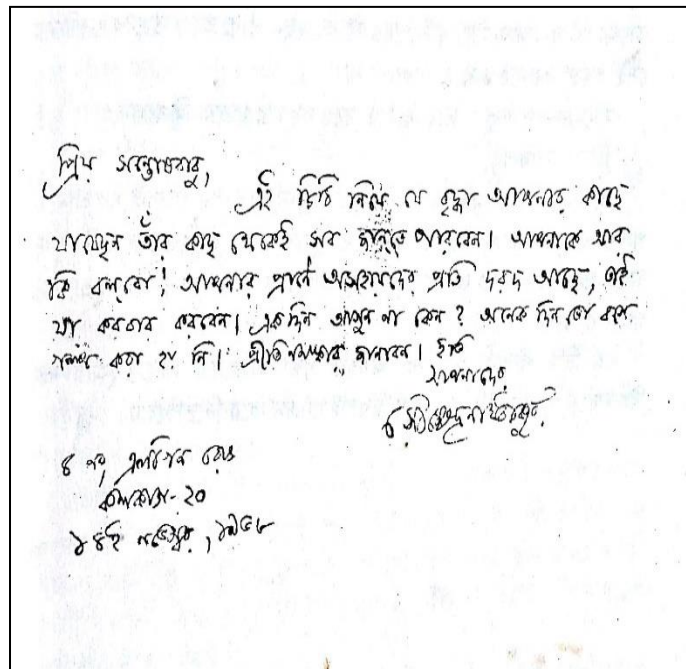 প্রিয় সন্তোষবাবু,
এই চিঠি নিয়ে যে বৃদ্ধা আপনার কাছে
যাচ্ছেন তাঁর কাছ থেকেই সব জানতে পারবেন। আপনাকে আর
কি বলবো! আপনার প্রাণে অসহায়দের প্রতি দরদ আছে, তাই
যা করবার করবেন। একদিন আসুন না কেন? অনেক দিন তো বসে
গল্প করা হয় নি। প্রীতি নমস্কার জানবেন। ইতি
আপনাদের
সৌম্যেন্দ্রনাথ ঠাকুর
৪ নং, এলগিন রোড
কলকাতা-২০
১৪ই নভেম্বর, ১৯৫৮